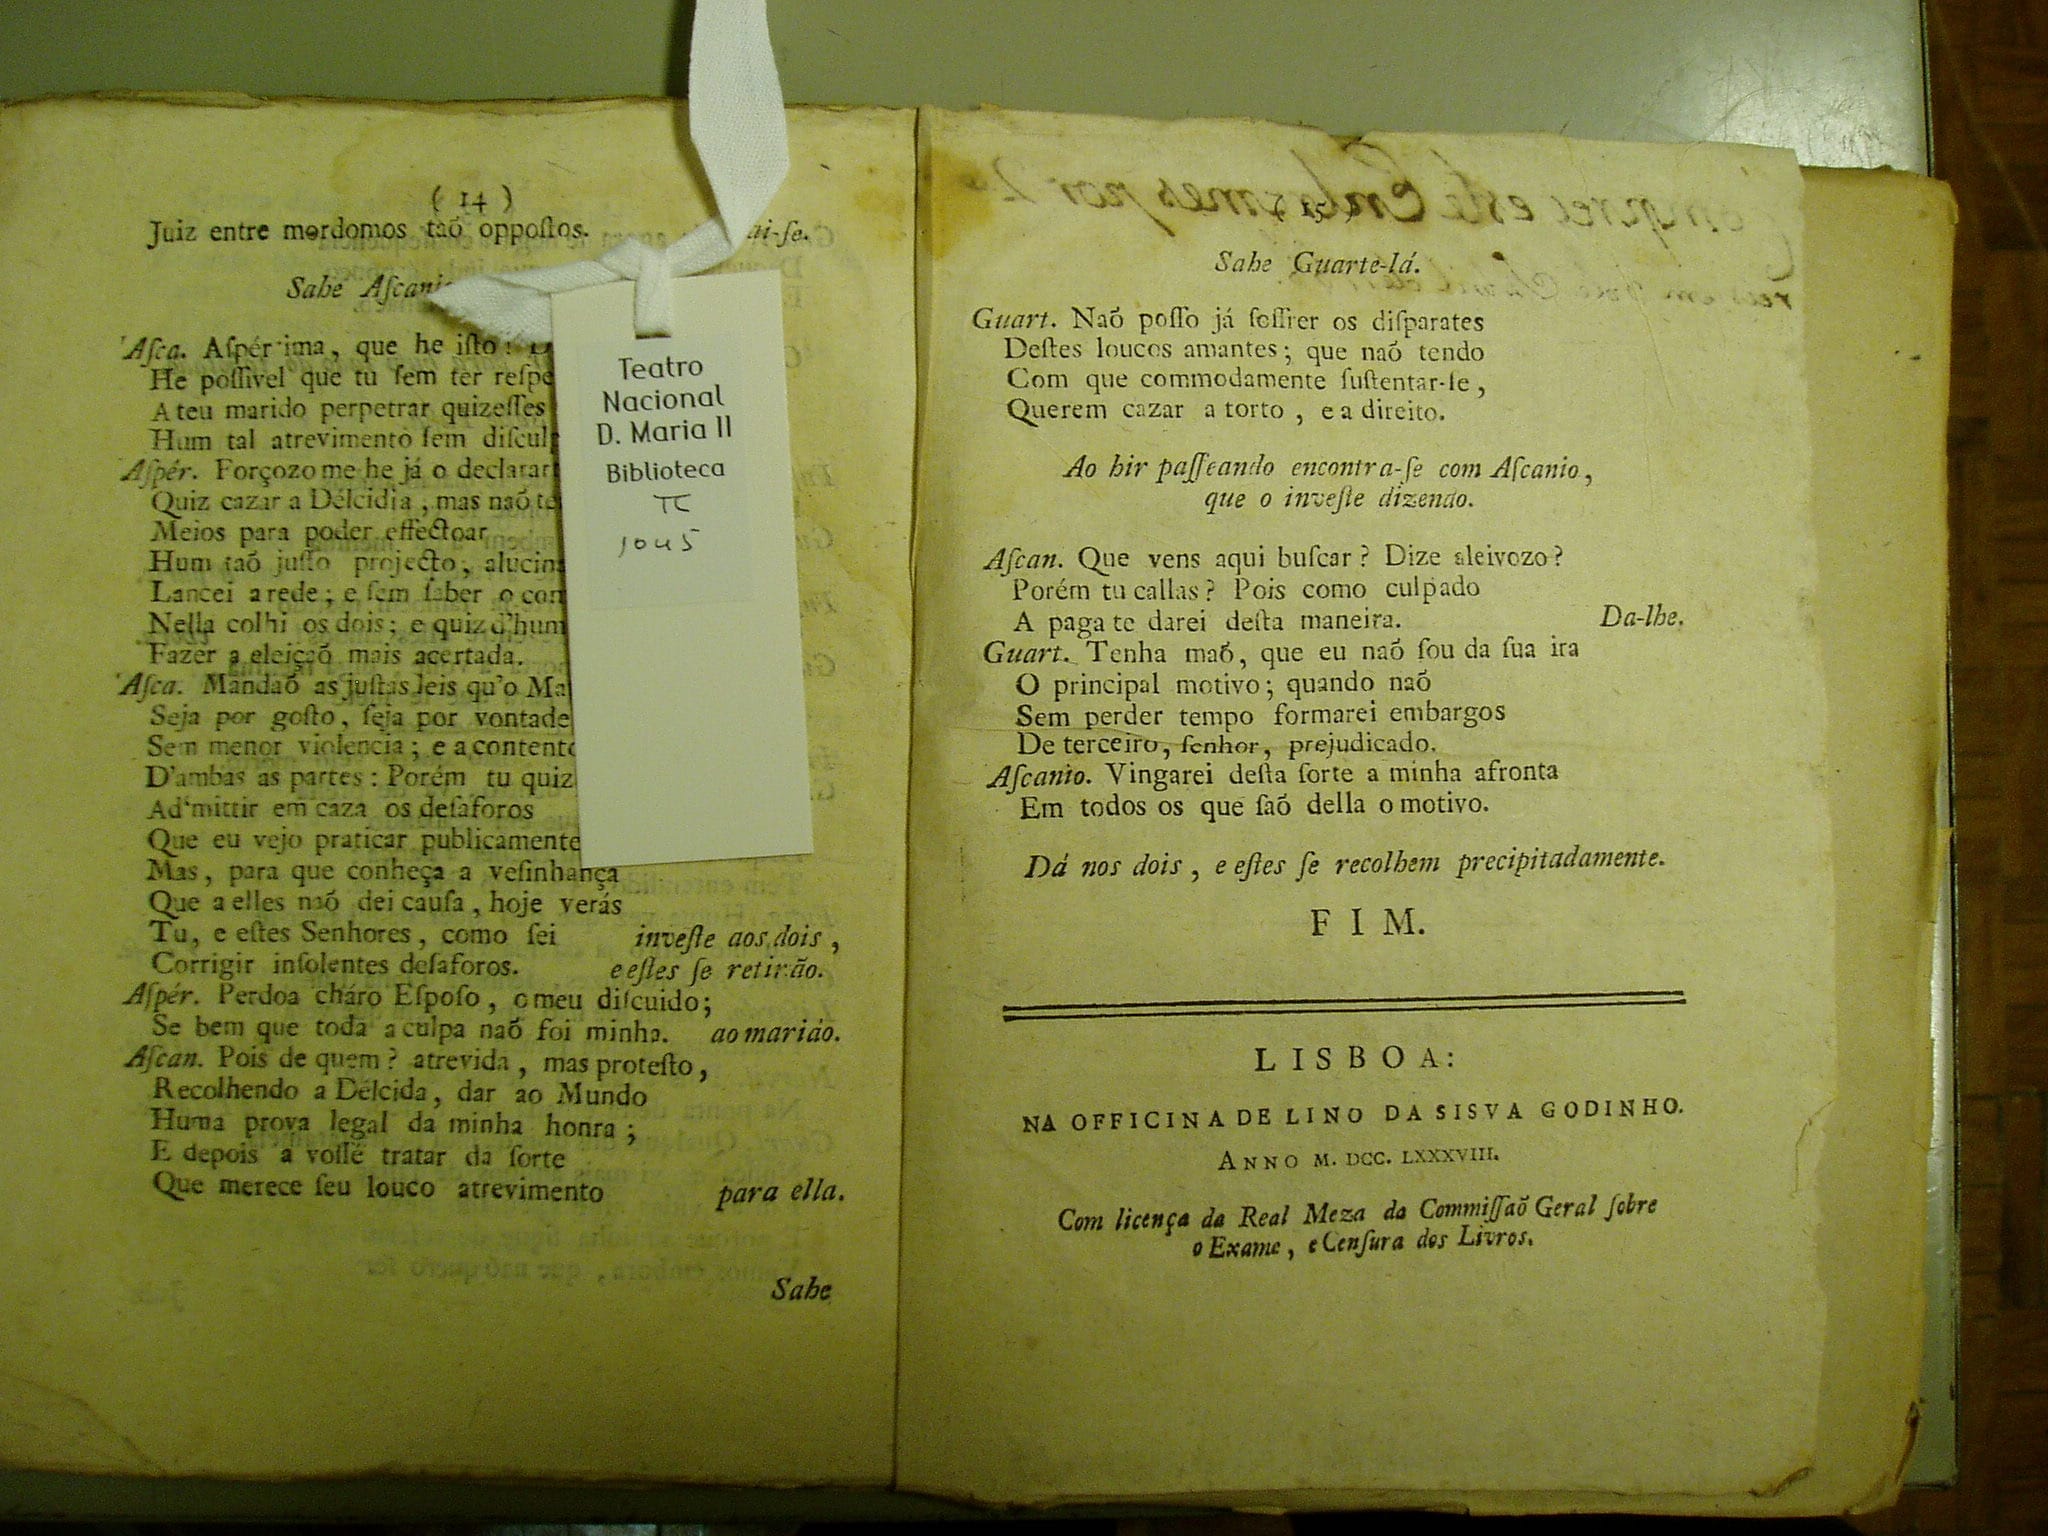 ( 14 )
Juiz entre mordomos taõ oppoſtos.
ai-ſe.
Sahe Aſcanio
Aſca. Aſpérrima, que he iſto:
He poſſivel que tu ſem ter reſpe
A teu marido perpetrar quizeſſes
Hum tal atrevimento ſem diſcul
Aſpér. Forçozo me he já o declarar
Quiz cazar a Délcidia, mas naõ te
Meios para poder effectoar
Hum taõ juſto projecto, alucin
Lancei a rede; e ſem ſaber o con
Nella colhi os dois; e quiz d'hum
Fazer a eleiçaõ mais acertada.
Aſca. Mandaõ as juſtas leis qu'o Ma
Seja por goſto, ſeja por vontade
Sem menor violencia; e a contento
D'ambas as partes: Porém tu quiz
Ad'mittir em caza os deſaforos
Que eu vejo praticar publicamente
Mas, para que conheça a veſinhança
Que a elles naõ dei cauſa, hoje verás
Tu, e eſtes Senhores, como ſei inveſte aos dois,
Corrigir inſolentes deſaforos. e eſtes ſe retiráo.
Aſpér. Perdoa cháro Eſpoſo, o meu diſcuido;
Se bem que toda a culpa naõ foi minha. ao marido.
Aſcan. Pois de quem? atrevida, mas proteſto,
Recolhendo a Délcida, dar ao Mundo
Huma prova legal da minha honra;
E depois a voſſé tratar da ſorte
Que merece ſeu louco atrevimento para ella.
Sahe
Teatro
Nacional
D. Maria II
Biblioteca
π
1045
Sahe Guarte-lá.
Guart. Naõ poſſo já ſoffrer os diſparates
Deſtes loucos amantes; que naõ tendo
Com que commodamente ſuſtentar-ſe,
Querem cazar a torto, e a direito.
Ao hir paſſeando encontra-ſe com Aſcanio,
que o inveſte dizendo.
Aſcan. Que vens aqui buſcar? Dize aleivozo?
Porém tu callas? Pois como culpado
A paga te darei deſta maneira. Da-lhe.
Guart. Tenha maõ, que eu naõ ſou da ſua ira
O principal motivo; quando naõ
Sem perder tempo formarei embargos
De terceiro, ſenhor, prejudicado.
Aſcanio. Vingarei deſta ſorte a minha afronta
Em todos os que ſaõ della o motivo.
Dá nos dois, e eſtes ſe recolhem precipitadamente.
FIM.
LISBOA:
NA OFFICINA DE LINO DA SISVA GODINHO.
ANNO M. DCC. LXXXVIII.
Com licença da Real Meza da Commiſſaõ Geral ſobre
o Exame, e Cenſura dos Livros.